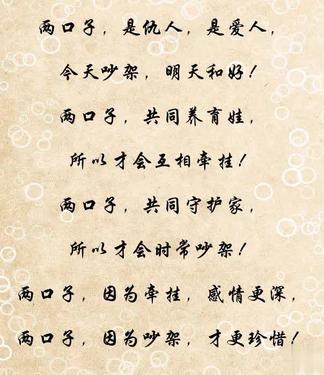 两口子，是仇人，是爱人，
今天吵架，明天和好！
两口子，共同养育娃，
所以才会互相牵挂！
两口子，共同守护家，
所以才会时常吵架！
两口子，因为牵挂，感情更深，
两口子，因为吵架，才更珍惜！